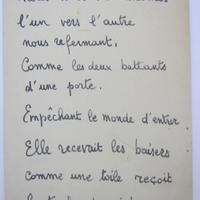 l'un vers l'autre
nous refermant,
Comme les deux battants
d'une porte.
Empêchant le monde d'entrer
Elle recevait les baisers
comme une toile reçoit